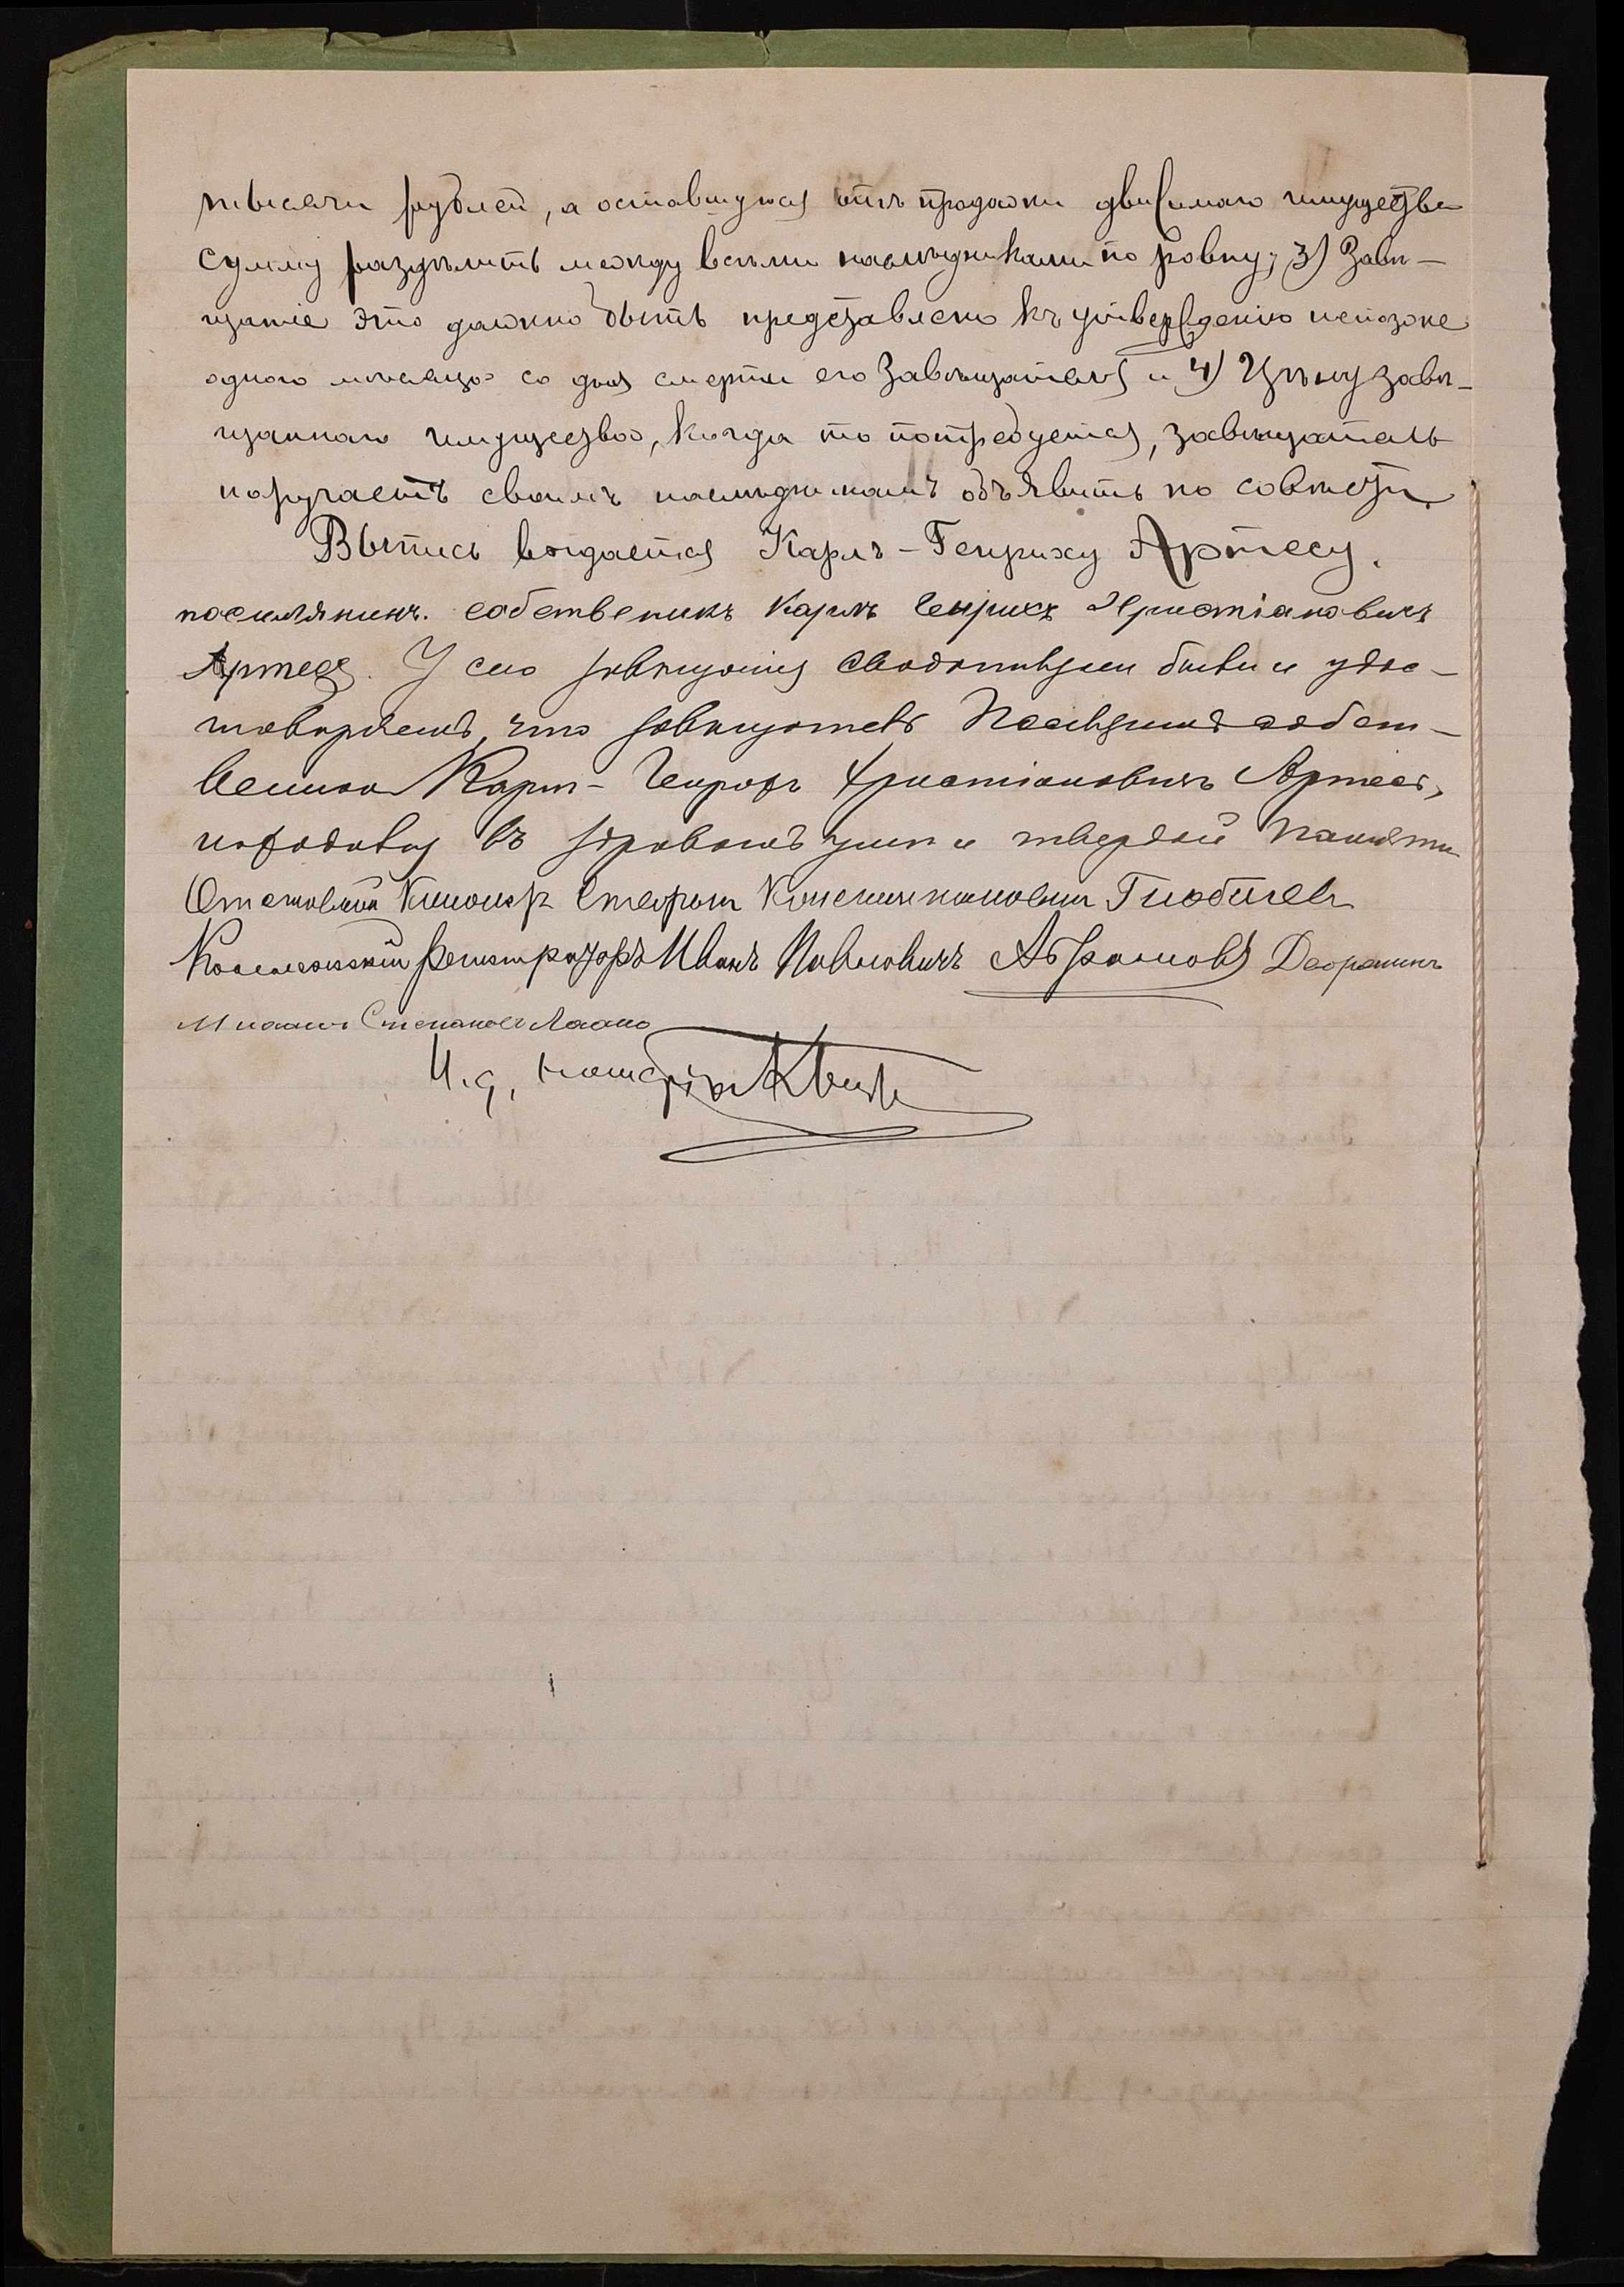 тысячи рублей, а оставшуюся отъ продажи движимаго имущества
сумму раздѣлить между всѣми наслѣдниками по ровну; 3) Завѣ-
щаніе это должно быть представлено къ утвержденію непозже
одного мѣсяца со дня смерти его Завѣщателя и 4) Цѣну завѣ-
щаннаго имущества, когда то потребуется, завѣщатель
поручаетъ своимъ наслѣдникамъ объявить по совѣсти.
Выпись выдается Карлъ-Генриху Артесу.
поселянинъ. собственикъ Карлъ Генрихъ Христіановичъ
Артесъ. У сего завѣщанія свидѣтелями были и удос-
товѣряемъ, что завѣщатель Поселянинъ собст-
венникъ Карл-Генрихъ Христіановичъ Артесъ,
находился въ здравомъ умѣ и твердой памяти
Отставной Стефан Константинович
Коллежскій регистраторъ Иванъ Павловичъ Абрамовъ Дворянинъ
Степановъ
И. д. нотаріуса